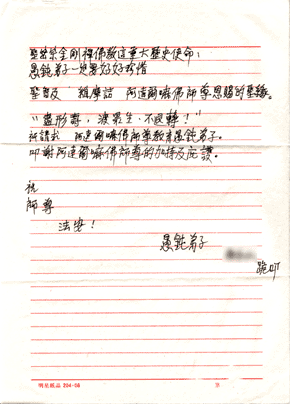 聖蒂承金剛禪佛教這重大歷史使命；
愚鈍弟子一定要好好珍惜
聖尊及 維摩詰 阿達爾嘛佛師尊恩賜的聖緣。
不退轉！"
祈請求 阿達爾嘛佛師尊教育愚鈍弟子。
叩謝阿達爾嘛佛師尊的加持及庇護。
祝
師尊
法安！
愚鈍弟子
跪叩
明星紙品 204-08